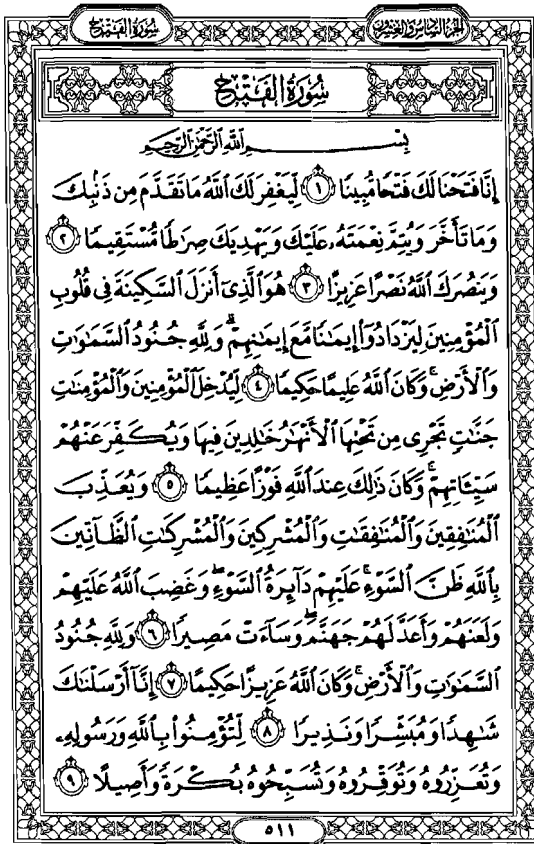 سُورَةُ الفَتْحِ الجُزءُ السَّادِسُ وَالعِشْرُونَ
سُورَةُ الفَتْحِ
بِسْمِ ٱللَّهِ ٱلرَّحْمَٰنِ ٱلرَّحِيمِ
إِنَّا فَتَحْنَا لَكَ فَتْحًا مُّبِينًا ١ لِّيَغْفِرَ لَكَ ٱللَّهُ مَا تَقَدَّمَ مِن ذَنۢبِكَ
وَمَا تَأَخَّرَ وَيُتِمَّ نِعْمَتَهُۥ عَلَيْكَ وَيَهْدِيَكَ صِرَٰطًا مُّسْتَقِيمًا ٢
وَيَنصُرَكَ ٱللَّهُ نَصْرًا عَزِيزًا ٣ هُوَ ٱلَّذِىٓ أَنزَلَ ٱلسَّكِينَةَ فِى قُلُوبِ
ٱلْمُؤْمِنِينَ لِيَزْدَادُوٓا۟ إِيمَٰنًا مَّعَ إِيمَٰنِهِمْ ۗ وَلِلَّهِ جُنُودُ ٱلسَّمَٰوَٰتِ
وَٱلْأَرْضِ ۚ وَكَانَ ٱللَّهُ عَلِيمًا حَكِيمًا ٤ لِّيُدْخِلَ ٱلْمُؤْمِنِينَ وَٱلْمُؤْمِنَٰتِ
جَنَّٰتٍ تَجْرِى مِن تَحْتِهَا ٱلْأَنْهَٰرُ خَٰلِدِينَ فِيهَا وَيُكَفِّرَ عَنْهُمْ
سَيِّـَٔاتِهِمْ ۚ وَكَانَ ذَٰلِكَ عِندَ ٱللَّهِ فَوْزًا عَظِيمًا ٥ وَيُعَذِّبَ
ٱلْمُنَٰفِقِينَ وَٱلْمُنَٰفِقَٰتِ وَٱلْمُشْرِكِينَ وَٱلْمُشْرِكَٰتِ ٱلظَّآنِّينَ
بِٱللَّهِ ظَنَّ ٱلسَّوْءِ ۚ عَلَيْهِمْ دَآئِرَةُ ٱلسَّوْءِ ۖ وَغَضِبَ ٱللَّهُ عَلَيْهِمْ
وَلَعَنَهُمْ وَأَعَدَّ لَهُمْ جَهَنَّمَ ۖ وَسَآءَتْ مَصِيرًا ٦ وَلِلَّهِ جُنُودُ
ٱلسَّمَٰوَٰتِ وَٱلْأَرْضِ ۚ وَكَانَ ٱللَّهُ عَزِيزًا حَكِيمًا ٧ إِنَّآ أَرْسَلْنَٰكَ
شَٰهِدًا وَمُبَشِّرًا وَنَذِيرًا ٨ لِّتُؤْمِنُوا۟ بِٱللَّهِ وَرَسُولِهِۦ
وَتُعَزِّرُوهُ وَتُوَقِّرُوهُ وَتُسَبِّحُوهُ بُكْرَةً وَأَصِيلًا ٩
٥١١